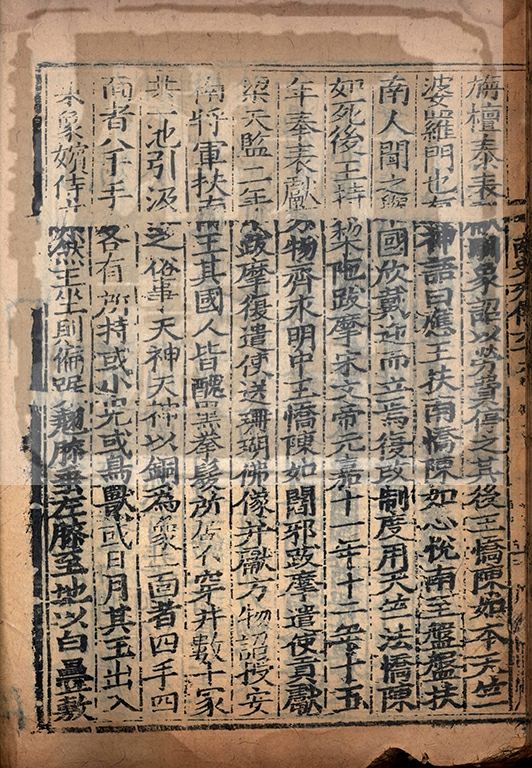 旃檀奉表獻馴象詔以勞費停之其後王憍陳如本天竺
婆羅門也有神語曰應王扶南憍陳如心悅南至盤盤扶
南人聞之舉國欣戴迎而立焉復改制度用天竺法憍陳
如死後王持梨陁跋摩宋文帝元嘉十一年十二年十五
年奉表獻方物齊永明中王憍陳如闍邪跋摩遣使貢獻
梁天監二年跋摩復遣使送珊瑚佛像并獻方物詔授安
南將軍扶南王其國人皆醜黑拳髮所居不穿井數十家
共一池引汲之俗事天神天神以銅為象二面者四手四
面者八手手各有所持或小兒或鳥獸或日月其王出入
乘象嬪侍亦然王坐則偏踞翹膝垂左膝至地以白疊敷